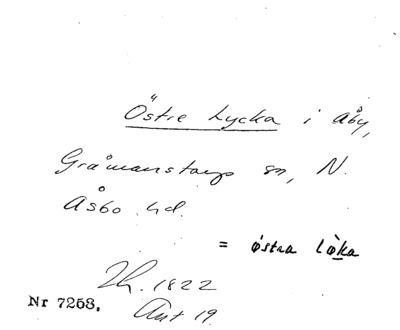 Östre Lycka i Åby,
Gråmanstorps sn, N.
Åsbo hd.
= östra løka
Lh. 1822
Nr 7258. Ant 19.